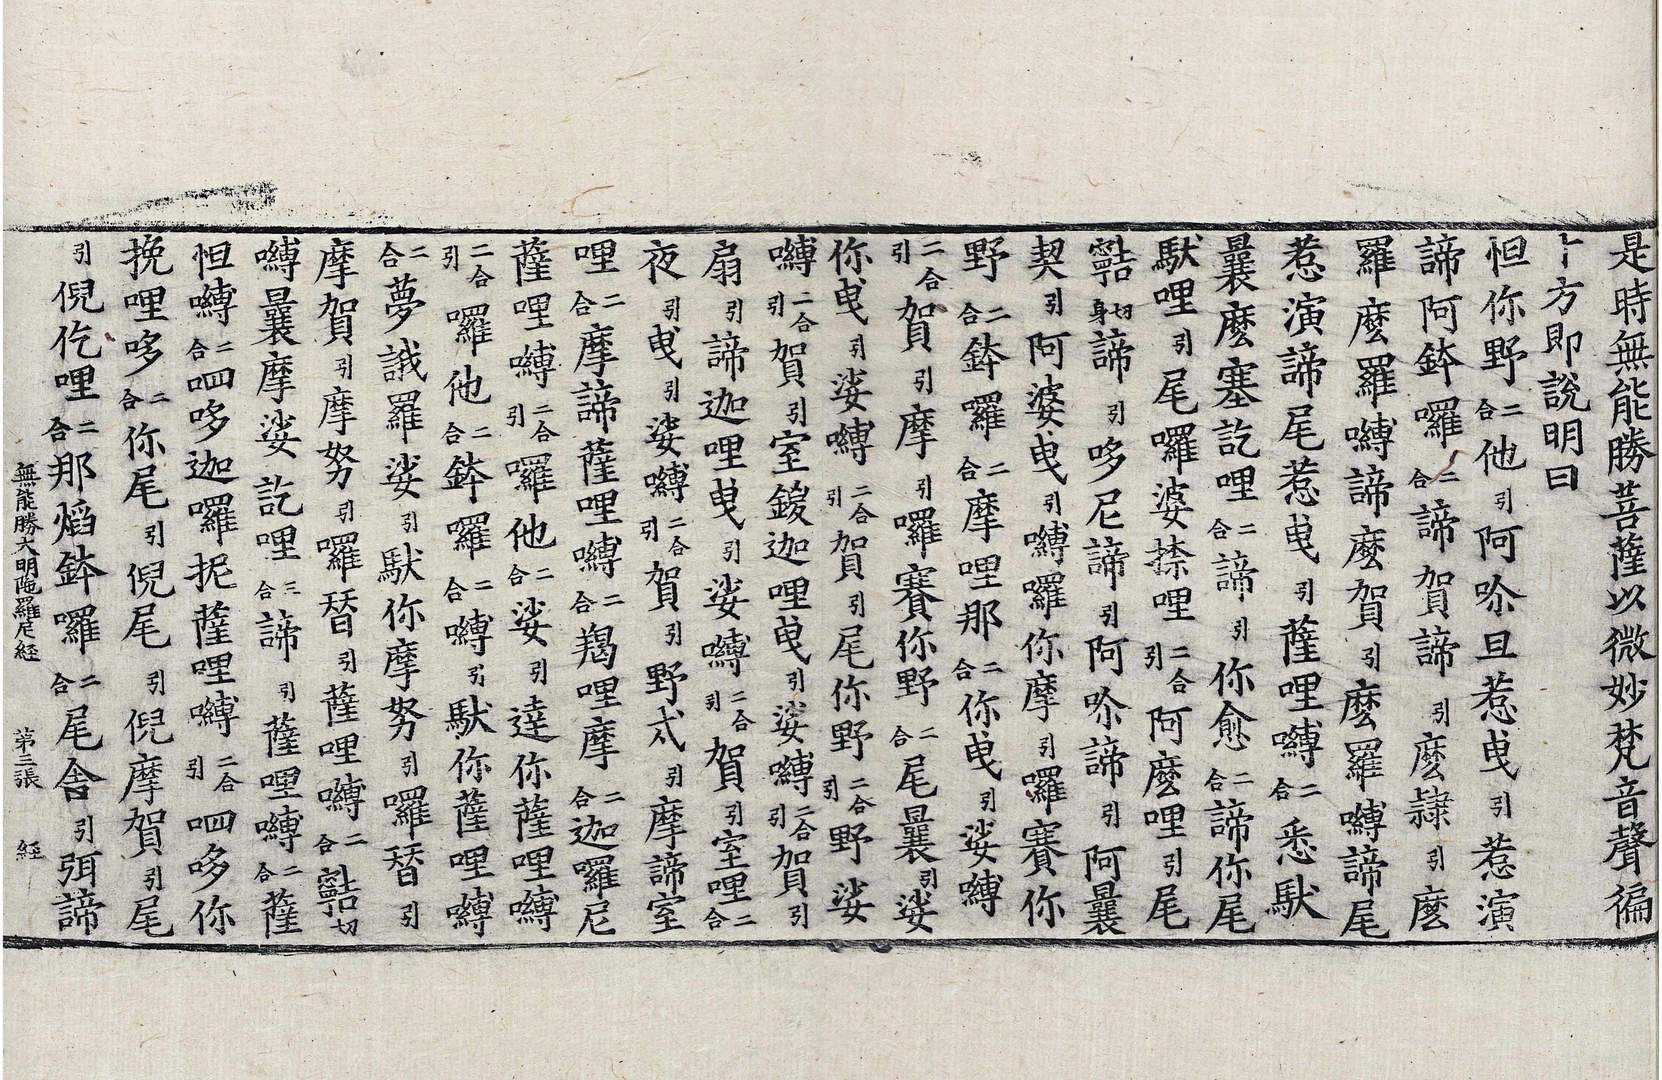 是時無能勝菩薩以微妙梵音聲徧
十方即說明曰
怛你野二合他引阿唹旦惹曳引惹演
諦阿鉢囉二合諦賀諦引麽隷引麽
羅麽羅嚩諦麽賀引麽羅嚩諦尾
惹演諦尾惹曳引薩哩嚩二合悉馱
曩麽塞訖哩二合諦引你愈二合諦你尾
馱哩引尾囉婆捺哩二合引阿麽哩引尾
切身諦引哆尼諦引阿唹諦引阿曩
契引阿婆曳引嚩囉你摩引囉賽你
野二合鉢囉二合摩哩那二合你曳引娑嚩
二合引賀引摩引囉賽你野二合尾曩引娑
你曳引娑嚩二合引賀引尾你野二合引野娑
嚩二合引賀引室鍐迦哩曳引娑嚩二合引賀引
扇引諦迦哩曳引娑嚩二合引賀引室哩二合
夜引曳引娑嚩二合引賀引野弌引摩諦室
哩二合摩諦薩哩嚩二合羯哩摩二合迦囉尼
薩哩嚩二合引囉他二合娑引達你薩哩嚩
二合引囉他二合鉢囉二合嚩引馱你薩哩嚩
二合夢誐羅娑引馱你摩努引囉替引
摩賀引摩努引囉替引薩哩嚩二合切
嚩曩摩娑訖哩三合諦引薩哩嚩二合薩
怛嚩二合呬哆迦囉抳薩哩嚩二合引呬哆你
挽哩哆二合你尾引倪尾引倪摩賀引尾
引倪仡哩二合那熖鉢囉二合尾舍引弭諦
無能勝大明陁羅尼經 第三張 經